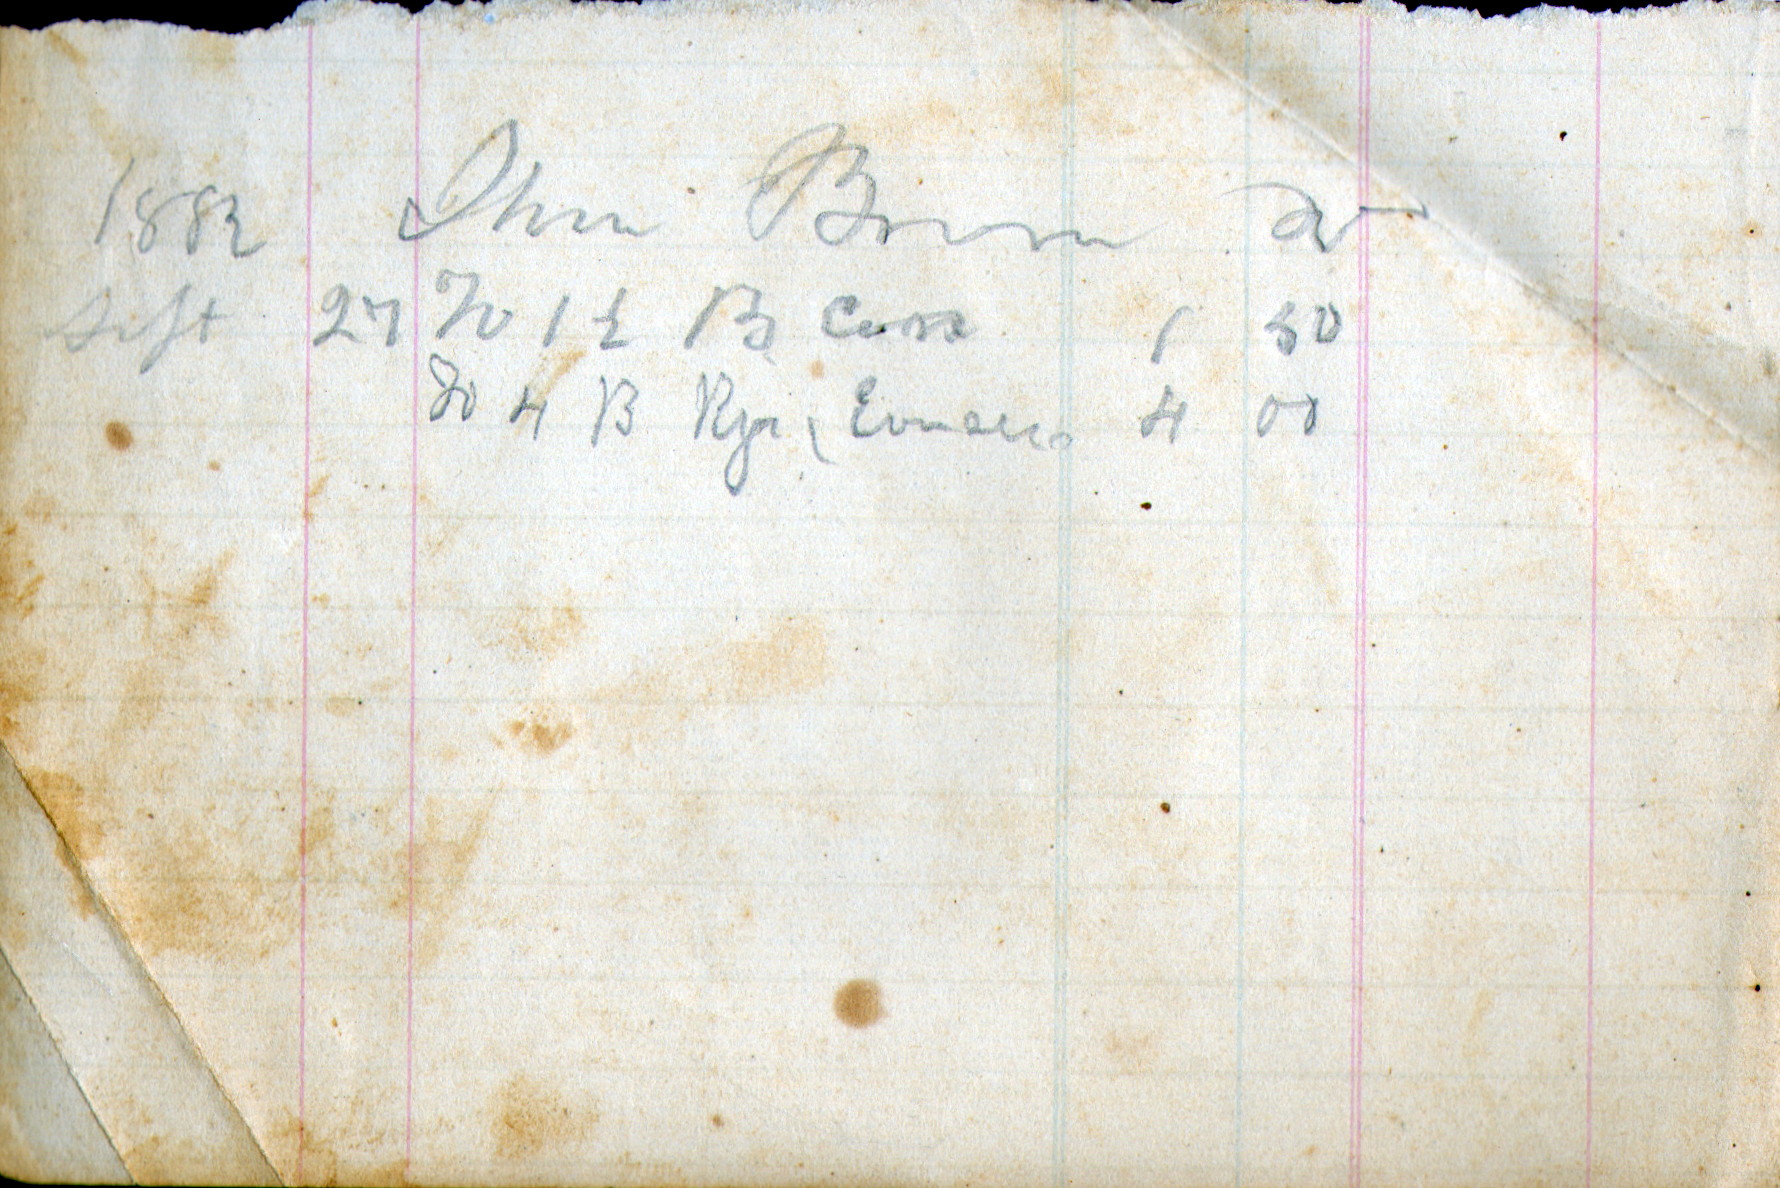 1882 John Brown Dr
Sept 27 To 1 ½ B Corn 1 50
To 4 B Rye 4 00